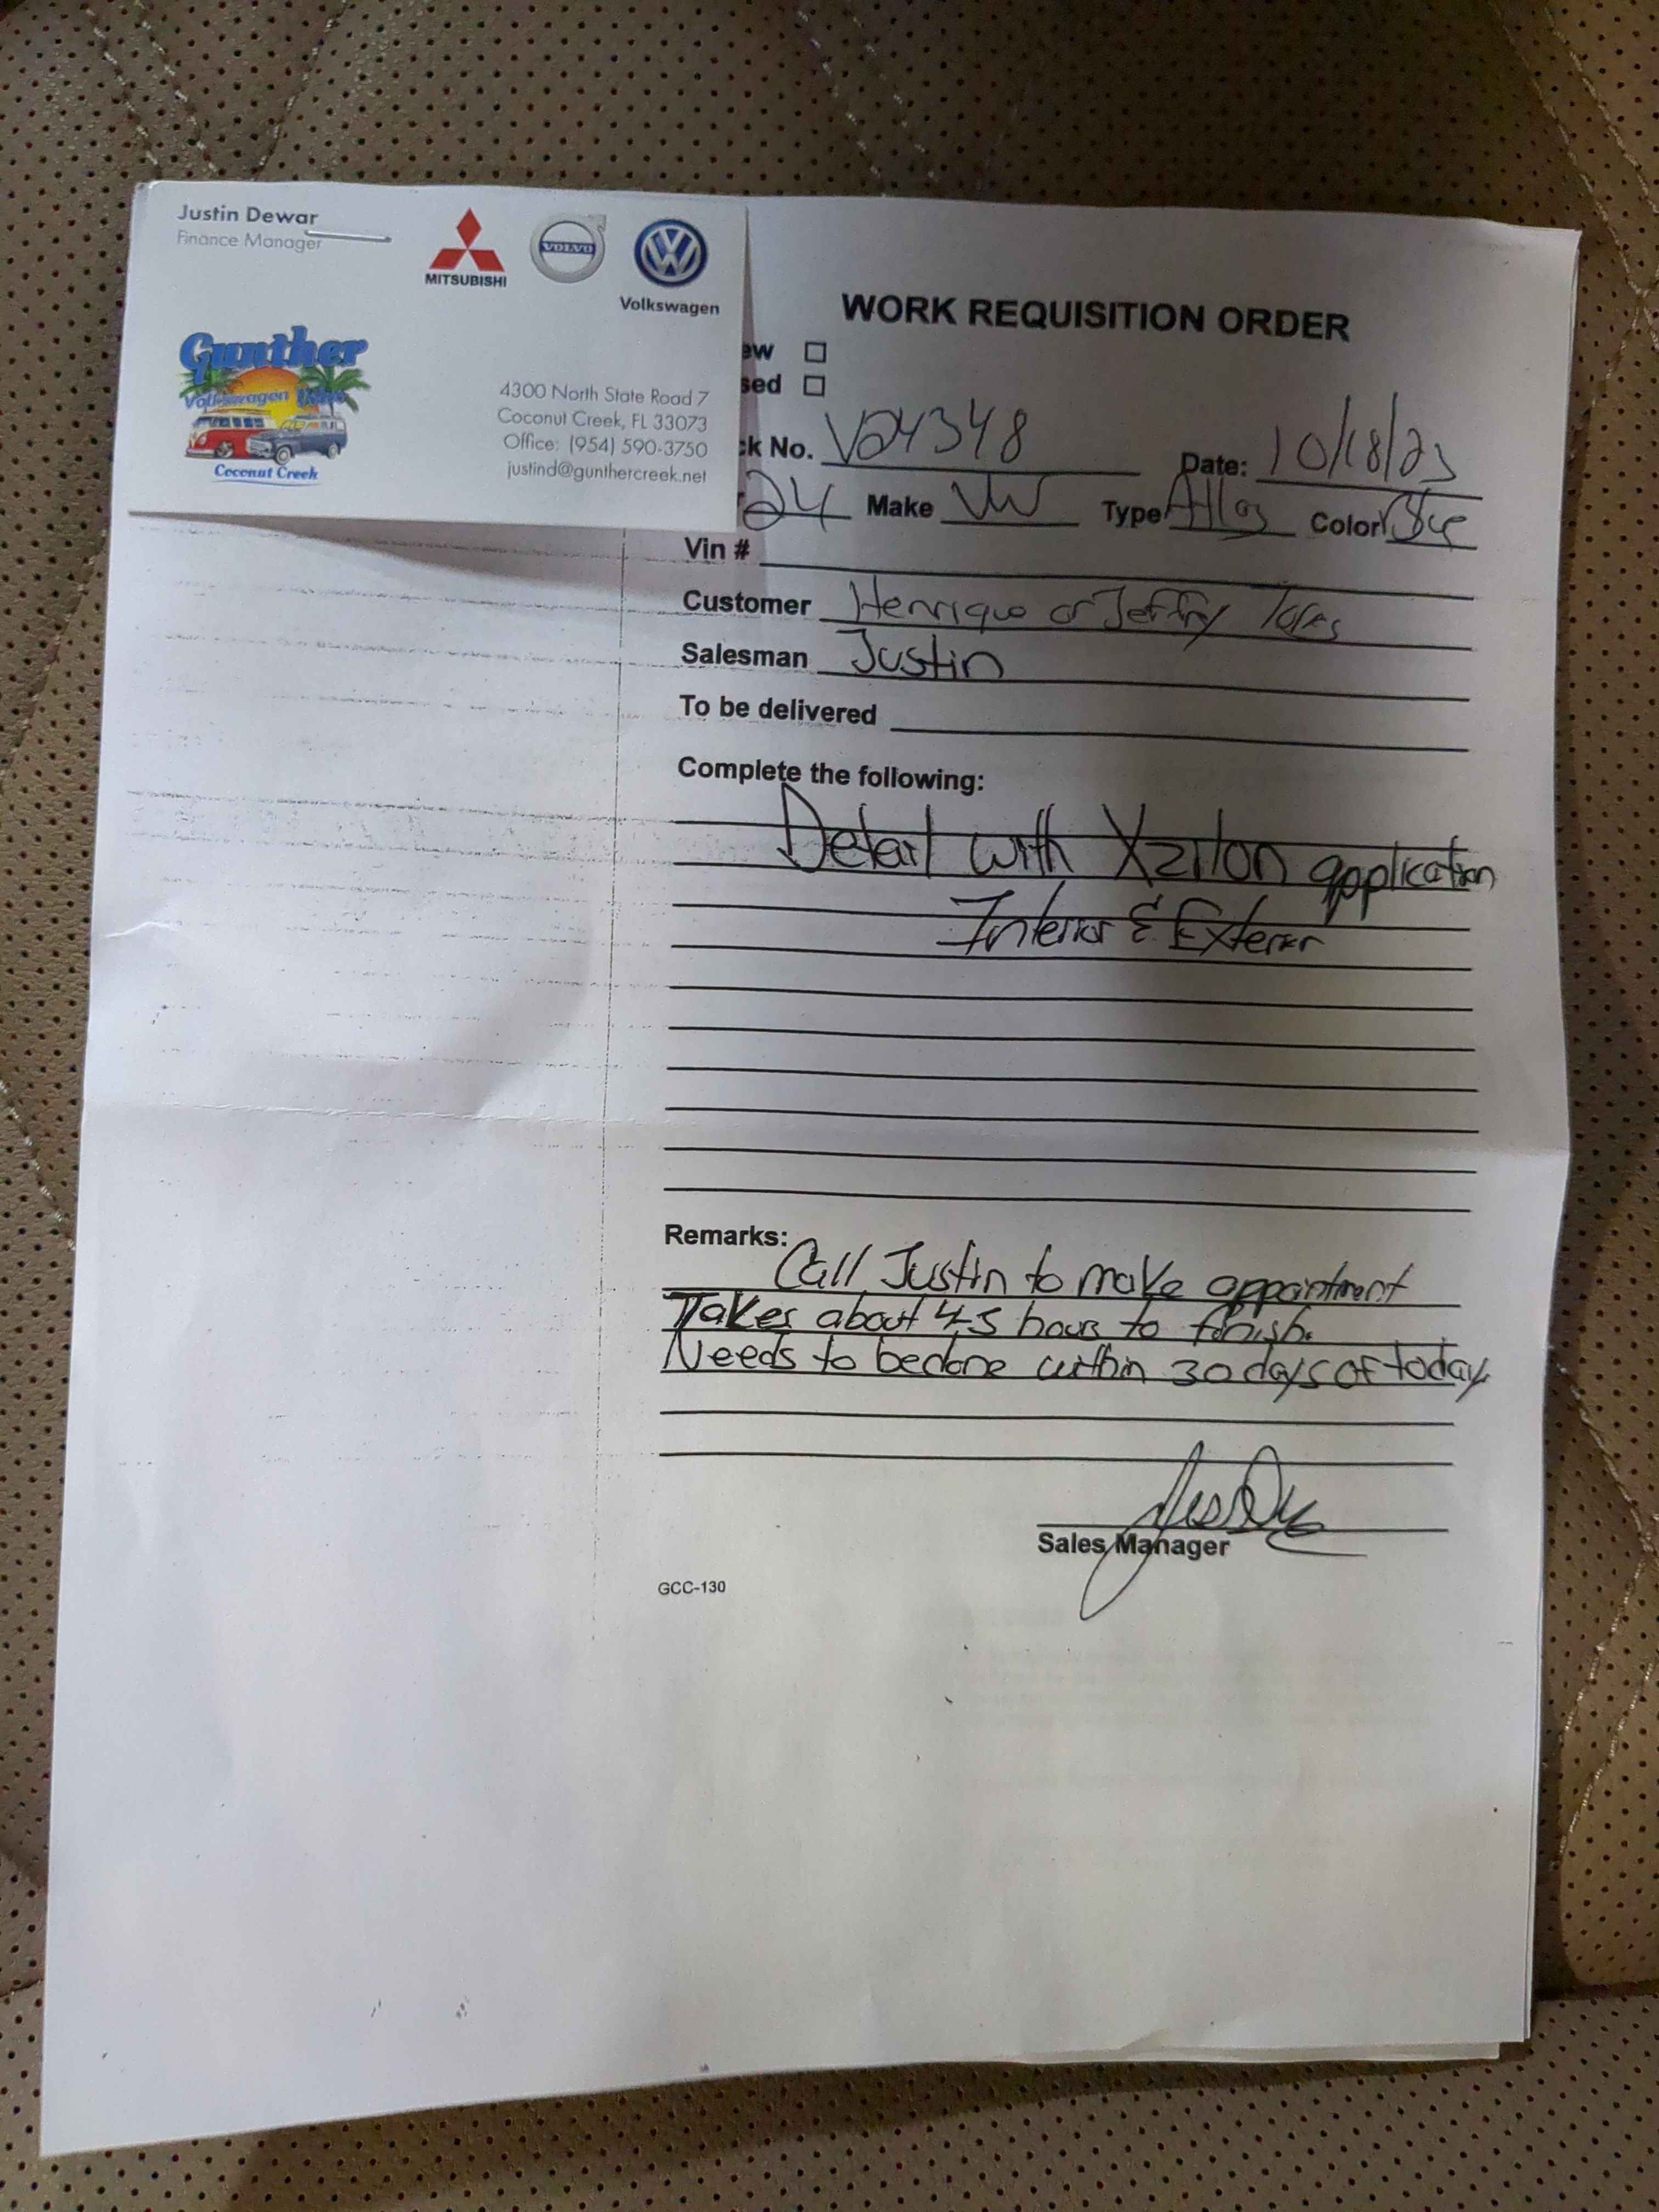 Justin Dewar
Finance Manager
MITSUBISHI
VOLVO
Volkswagen
Gunther
Volkswagen
Coconut Creek
4300 North State Road 7
Coconut Creek, FL 33073
Office: (954) 590-3750
justind@gunthercreek.net
WORK REQUISITION ORDER
ew
sed
ck No. V24348 Date: 10/18/23
24 Make VW Type Atlas Color Blue
Vin #
Customer Henrique or Jeffry
Salesman Justin
To be delivered
Complete the following:
Detail with Xzilon application
Interior & Exterior
Remarks:
Call Justin to make appointment
Takes about 4-5 hours to finish.
Needs to be done within 30 days of today
Sales Manager
GCC-130